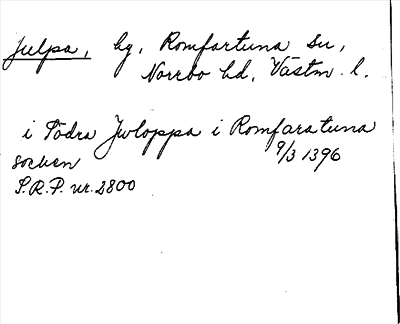 Julpa, by, Romfartuna sn,
Norrbo hd, Västm. l.
i Södra Jwloppa i Romfaratuna
socken 9/3 1396
S.R.P. nr. 2800